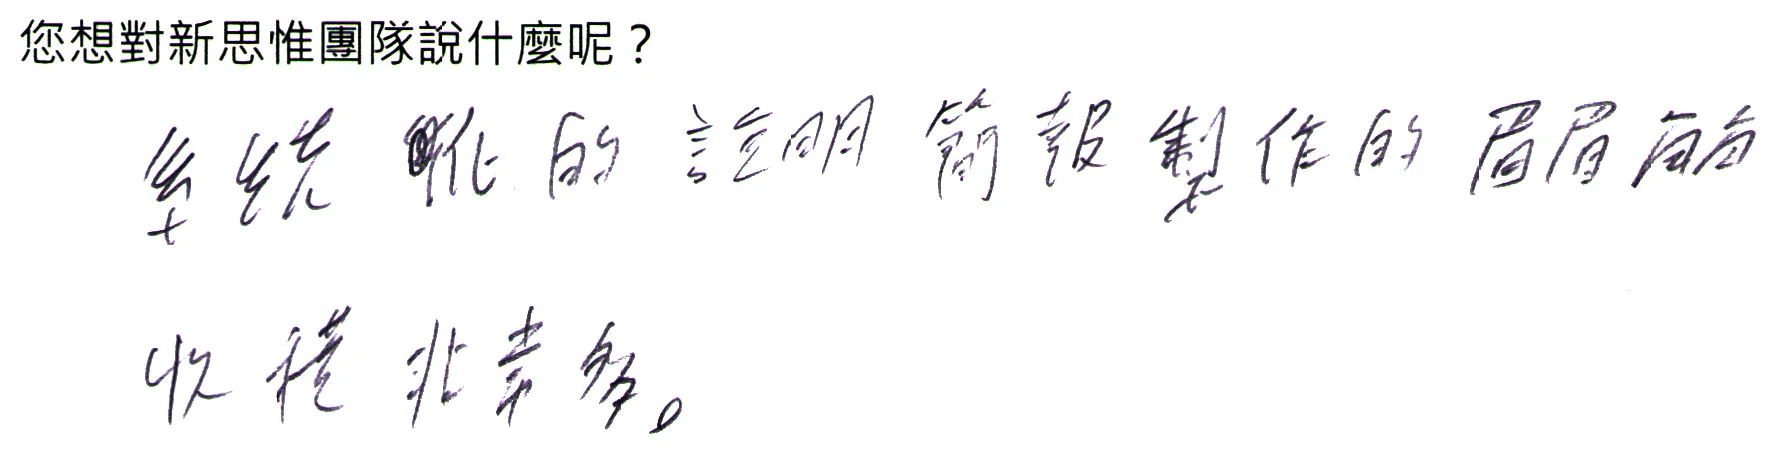 您想對新思惟團隊說什麼呢？
系統化的說明簡報製作的眉眉角角
收穫非常多。